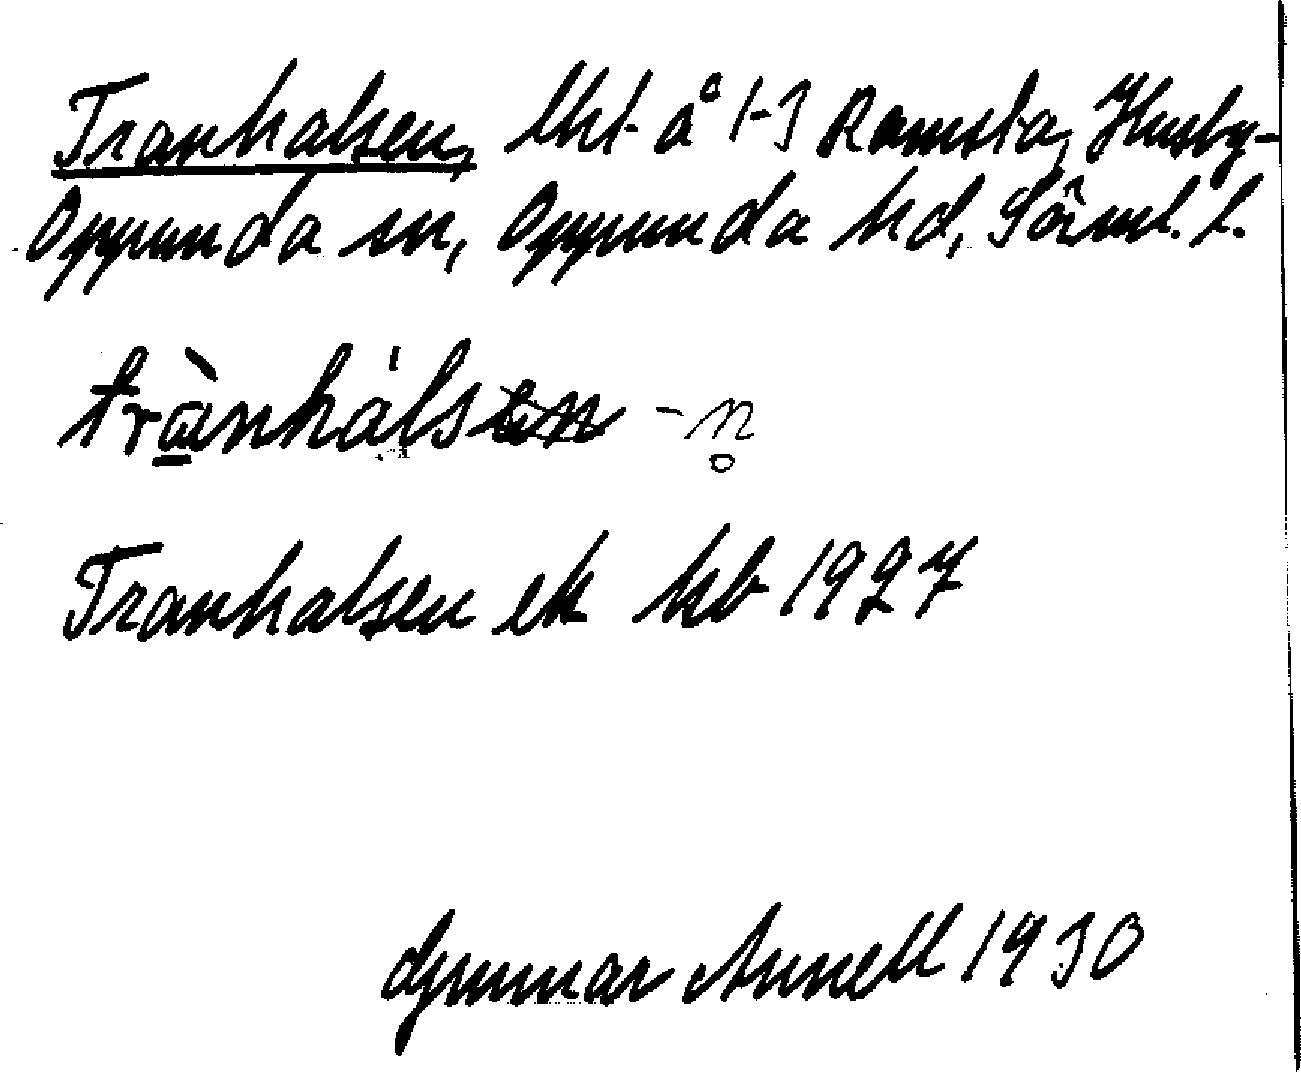 Tranhalsen, lht å 1-3 Ramsta, Husby-
Oppunda sn, Oppunda hd, Söml. l.
trànhálsen -n̥
Tranhalsen ek kb 1927
Gunnar Annell 1930